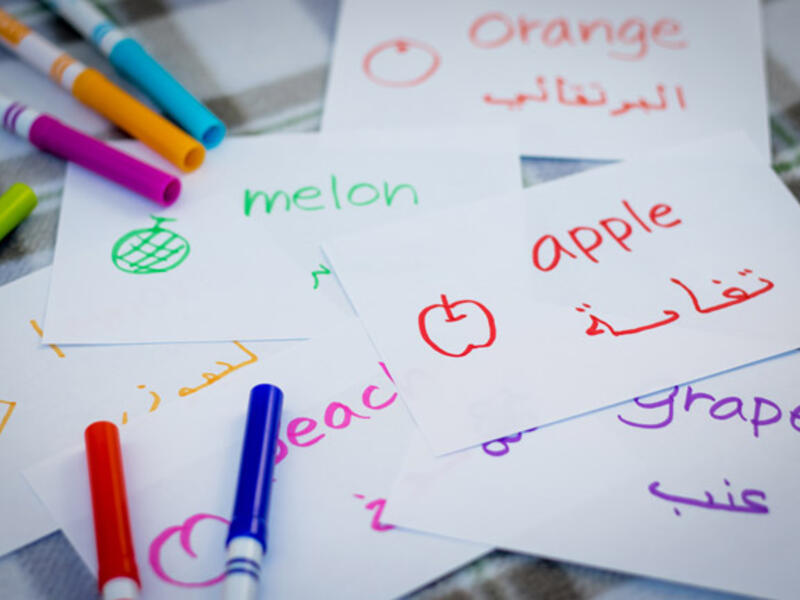 Orange
البرتقالي
melon
apple
تفاحة
peach
grape
عنب